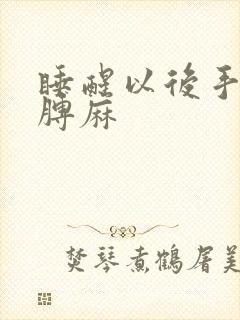 睡醒以後手
髆麻
焚琴煮鶴屠美